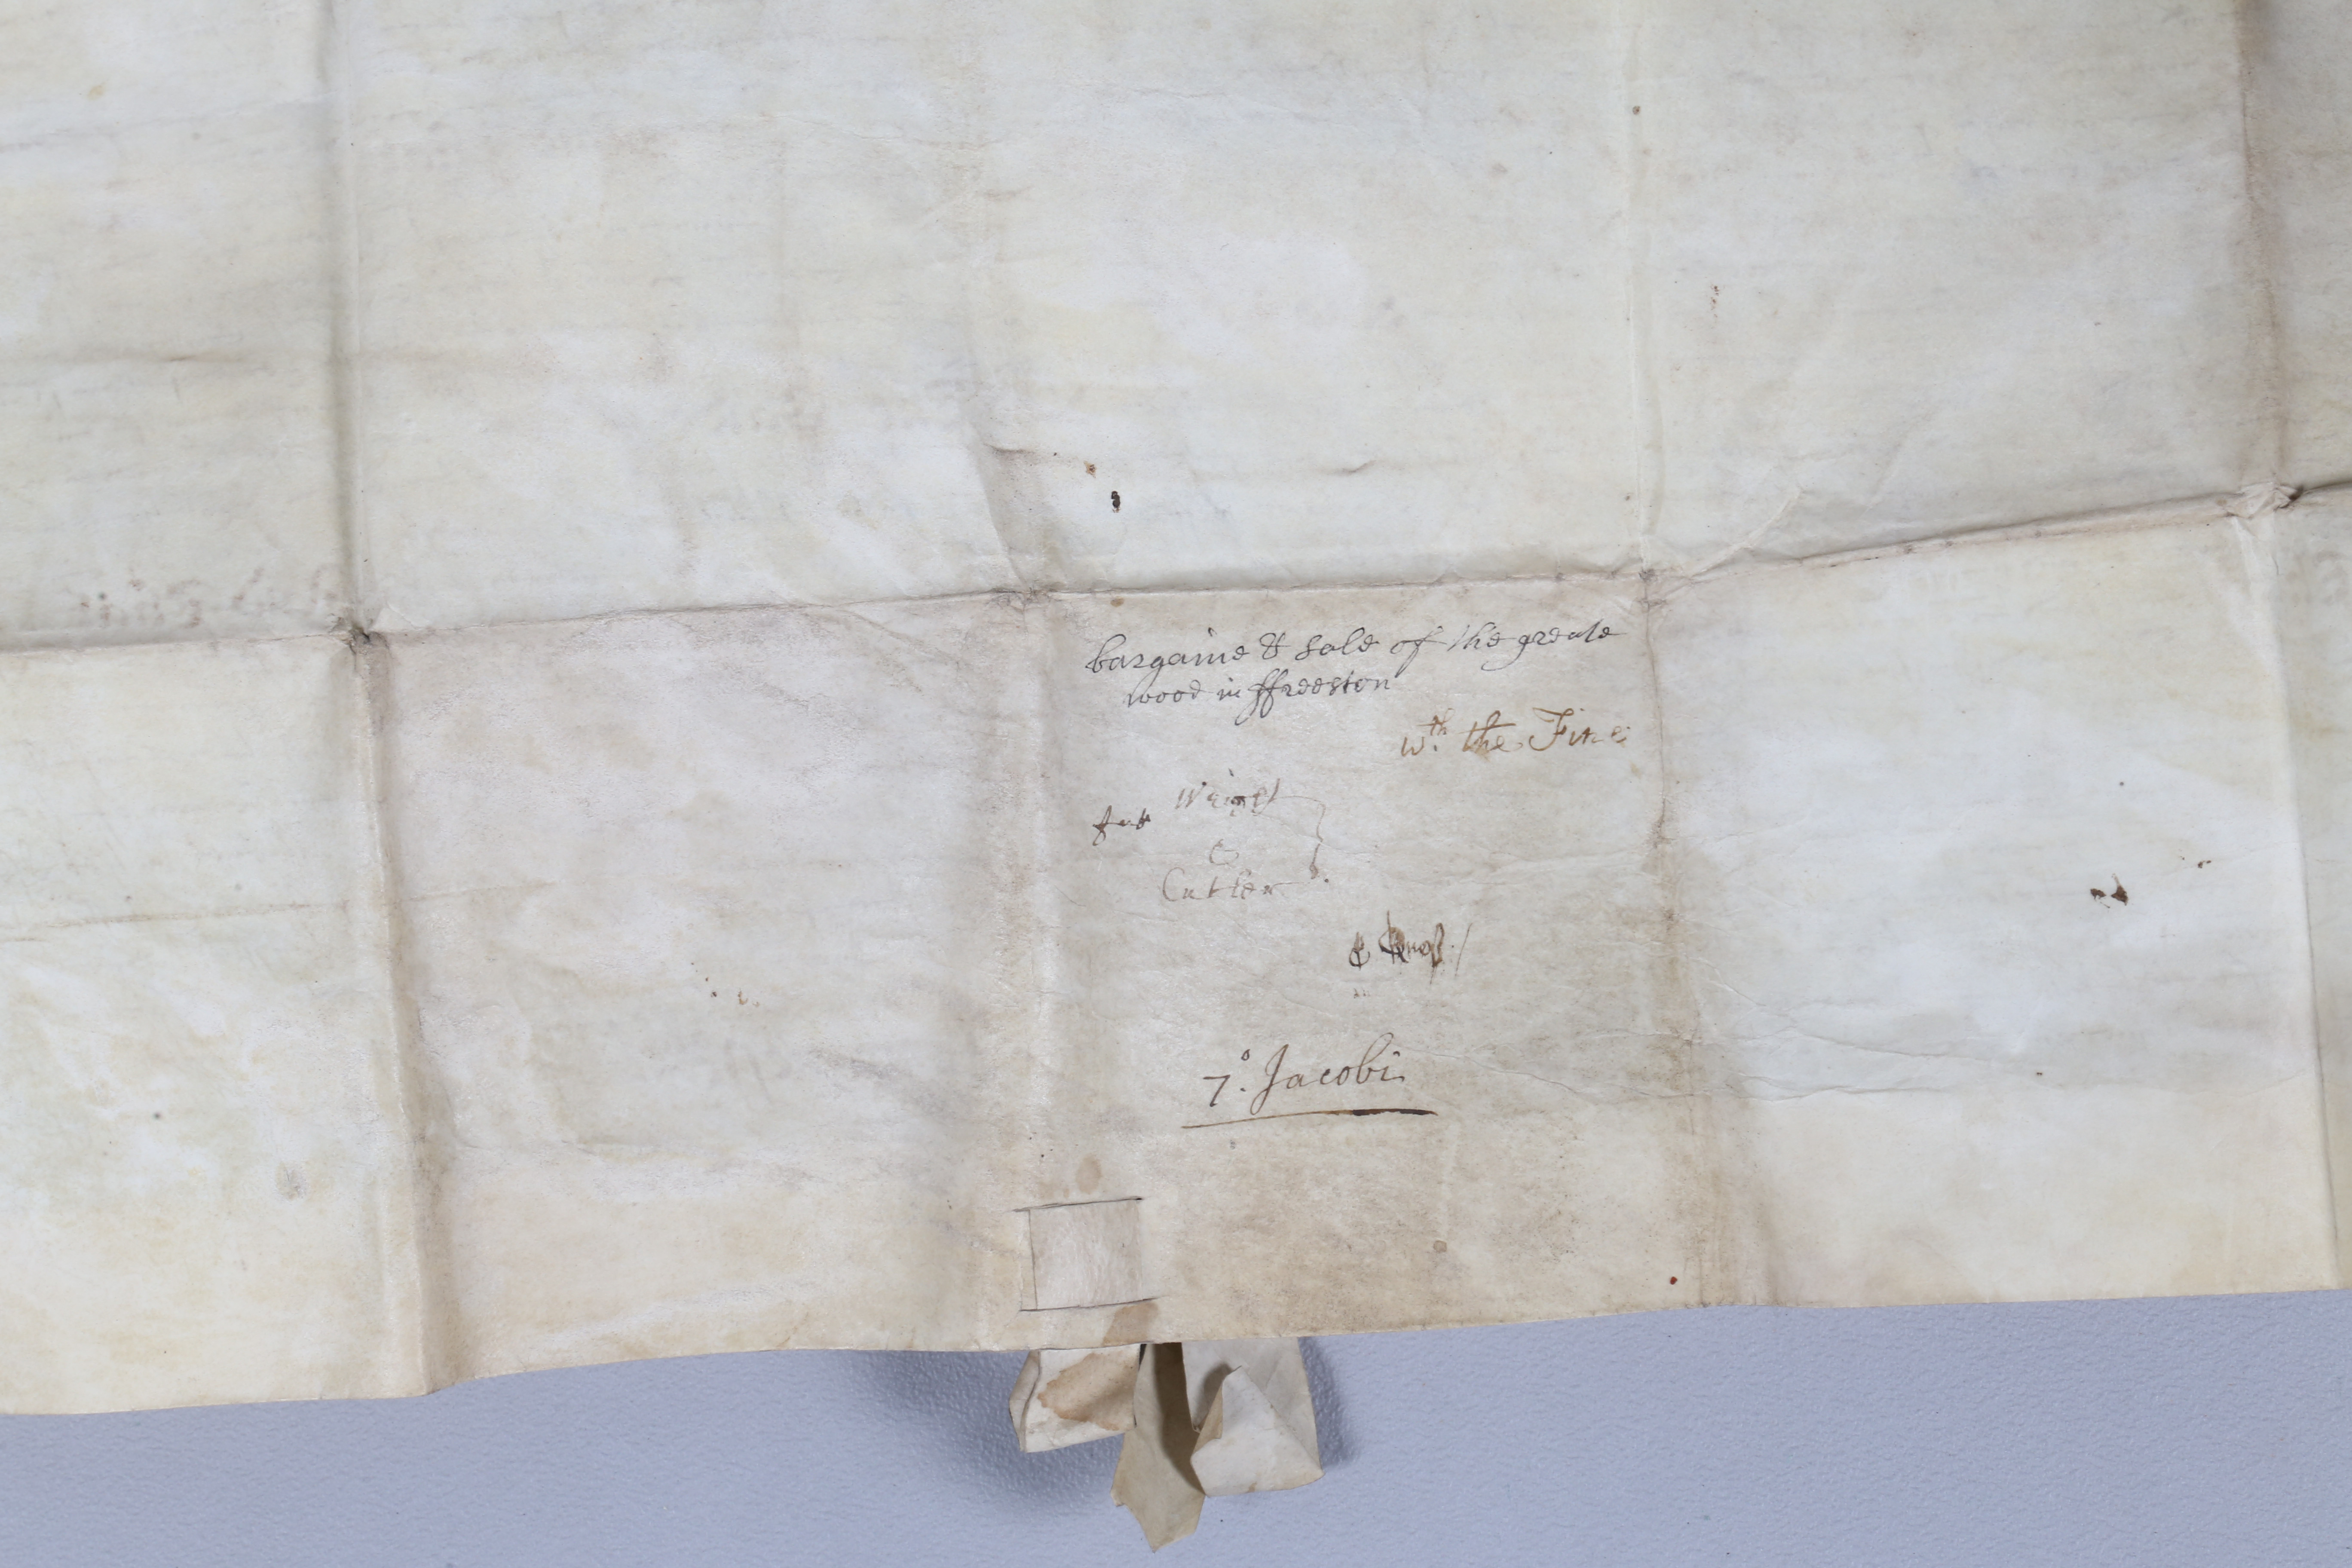 bargaine & sale of the greate
wood in ffreeston
wth. the Fine
&
Cutler
&
7o. Jacobi